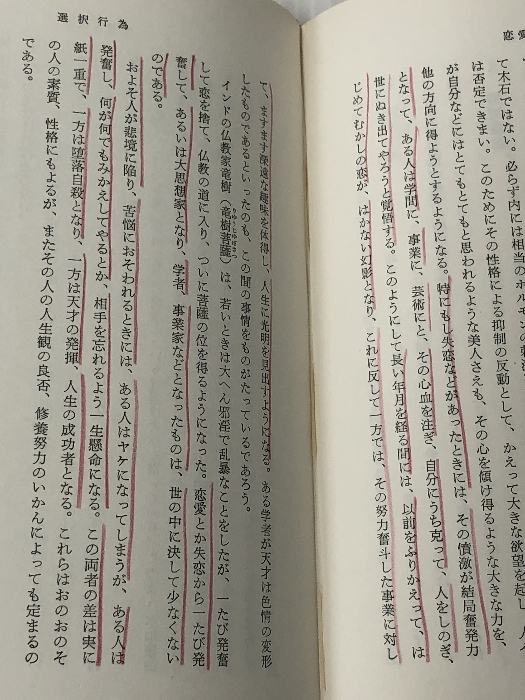 恋愛
て木石ではない。必らず内には相当のホルモンの刺激
は否定できまい。このためにその性格による抑制の反動として、かえって大きな欲望を起し、人々
が自分などにはとてもとてもと思われるような美人さえも、その心を傾け得るような大きな力を、
他の方向に得ようとするようになる。特にもし失恋などがあったときには、その憤激が結局奮発力
となって、ある人は学問に、事業に、芸術にと、その心血を注ぎ、自分にうち克って、人をしのぎ、
世にぬき出てやろうと覚悟する。このようにして長い年月を経る間には、以前をふりかえって、は
じめてむかしの恋が、はかない幻影となり、これに反して一方では、その努力奮斗した事業に対し
選択行為
て、ますます深遠な趣味を体得し、人生に光明を見出すようになる。ある学者が天才は色情の変形
したものであるといったのも、この間の事情をものがたっているであろう。
インドの仏教家竜樹(竜樹菩薩)は、若いときは大へん邪淫で乱暴なことをしたが、一たび発奮
りゅうじゅぼさつ
して恋を捨て、仏教の道に入り、ついに菩薩の位を得るようになった。恋愛とか失恋から一たび発
奮して、あるいは大思想家となり、学者、事業家などとなったものは、世の中に決して少なくない
のである。
およそ人が悲境に陥り、苦悩におそわれるときには、ある人はヤケになってしまうが、ある人は
発奮し、何が何でもみかえしてやるとか、相手を忘れるよう一生懸命になる。この両者の差は実に
紙一重で、一方は堕落自殺となり、一方は天才の発揮、人生の成功者となる。これらはおのおのそ
の人の素質、性格にもよるが、またその人の人生観の良否、修養努力のいかんによっても定まるの
である。